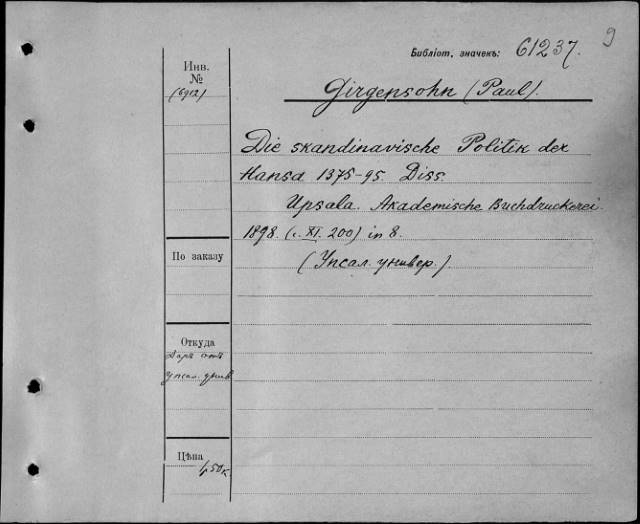 9
Библіот. значекъ: 61237.
Инв.
№
(6912)
Girgensohn (Paul).
Die skandinavische Politik der
Hansa 1375-95. Diss.
Upsala. Akademische Buchdruckerei.
1898. (с. XI. 200) in 8.
(Упсал. универ.)
По заказу
Откуда
Даръ отъ
Упсал. унив.
Цѣна
50к.